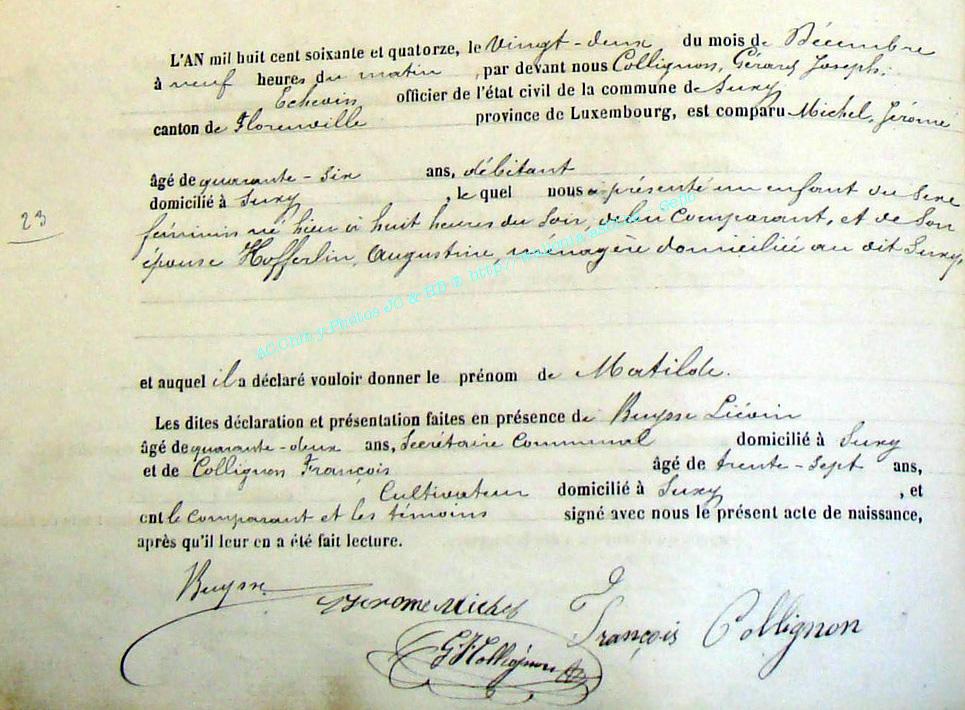 L'AN mil huit cent soixante et quatorze, le Vingt-deux du mois de Décembre
à neuf heures du matin, par devant nous Collignon, Gérard Joseph,
Echevin officier de l'état civil de la commune de Suxy
canton de Florenville province de Luxembourg, est comparu Michel, Jérôme
âgé de quarante-six ans, débitant
domicilié à Suxy, le quel nous a présenté un enfant du Sexe
23
féminin né hier à huit heures du Soir, de lui Comparant, et de Son
épouse Hofferlin, Augustine, ménagère domiciliée au dit Suxy,
AC Chiny Photos JC & BD © http://
et auquel il a déclaré vouloir donner le prénom de Matilde.
Les dites déclaration et présentation faites en présence de Buysse Liévin
âgé de quarante-deux ans, Secrétaire Communal domicilié à Suxy
et de Collignon François âgé de trente-Sept ans,
Cultivateur domicilié à Suxy, et
ont le comparant et les témoins signé avec nous le présent acte de naissance,
après qu'il leur en a été fait lecture.
Buysse
Jerome Michel
François Collignon
GJCollignon